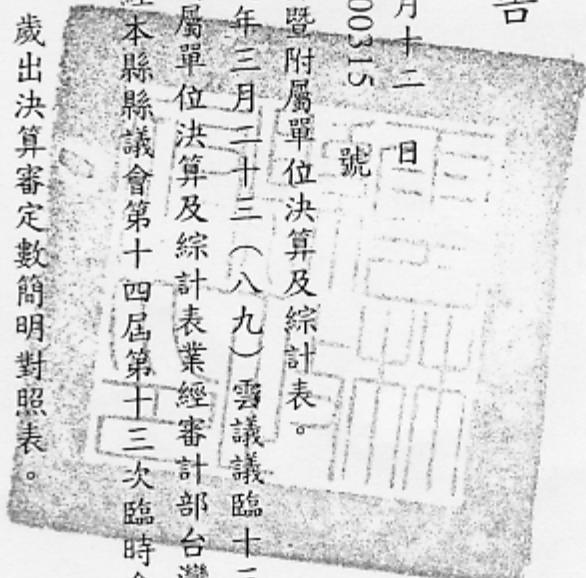 告
月十二日
00315號
暨附屬單位決算及綜計表。
年三月二十三（八九）雲議議臨十三
屬單位決算及綜計表業經審計部台灣
經本縣縣議會第十四屆第十三次臨時會
歲出決算審定數簡明對照表。